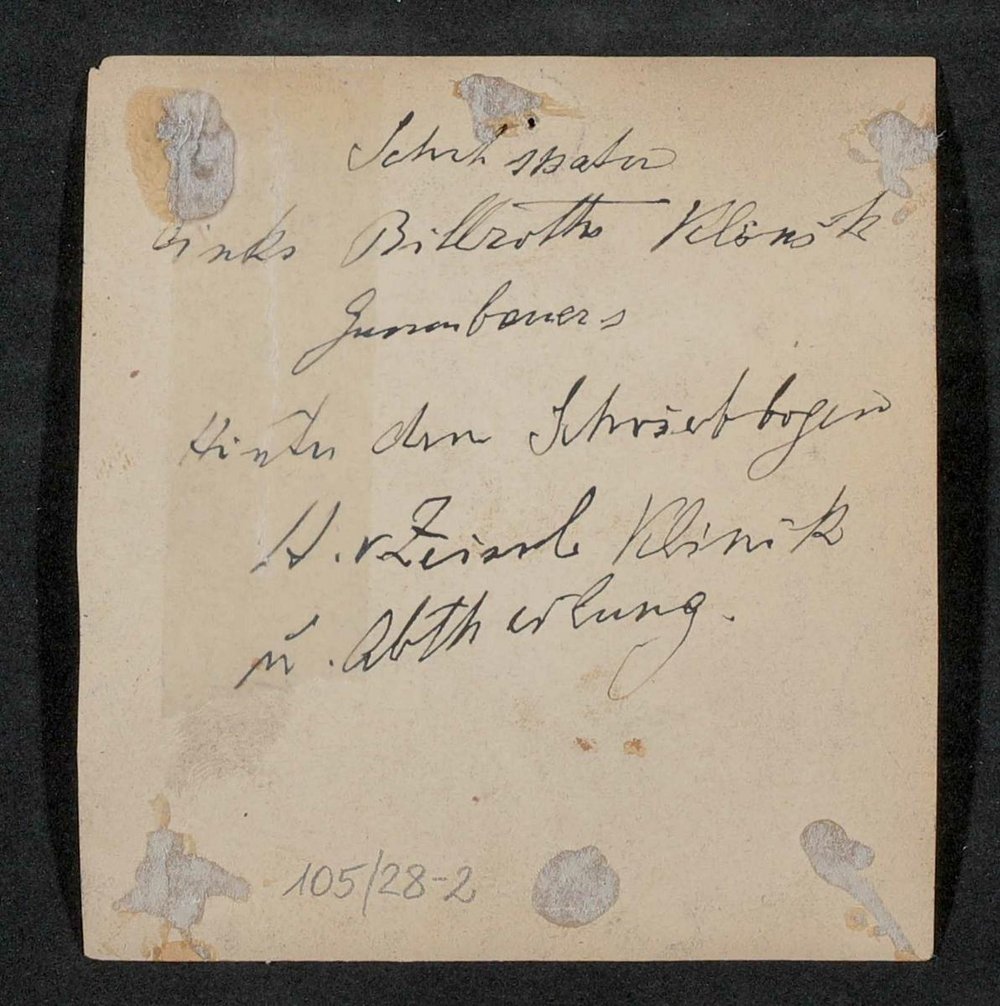 links Billroths Klinik
Gussenbauers
Hinter dem Schwibbogen
H. v Zeissl Klinik
u. Abtheilung.
105/28-2